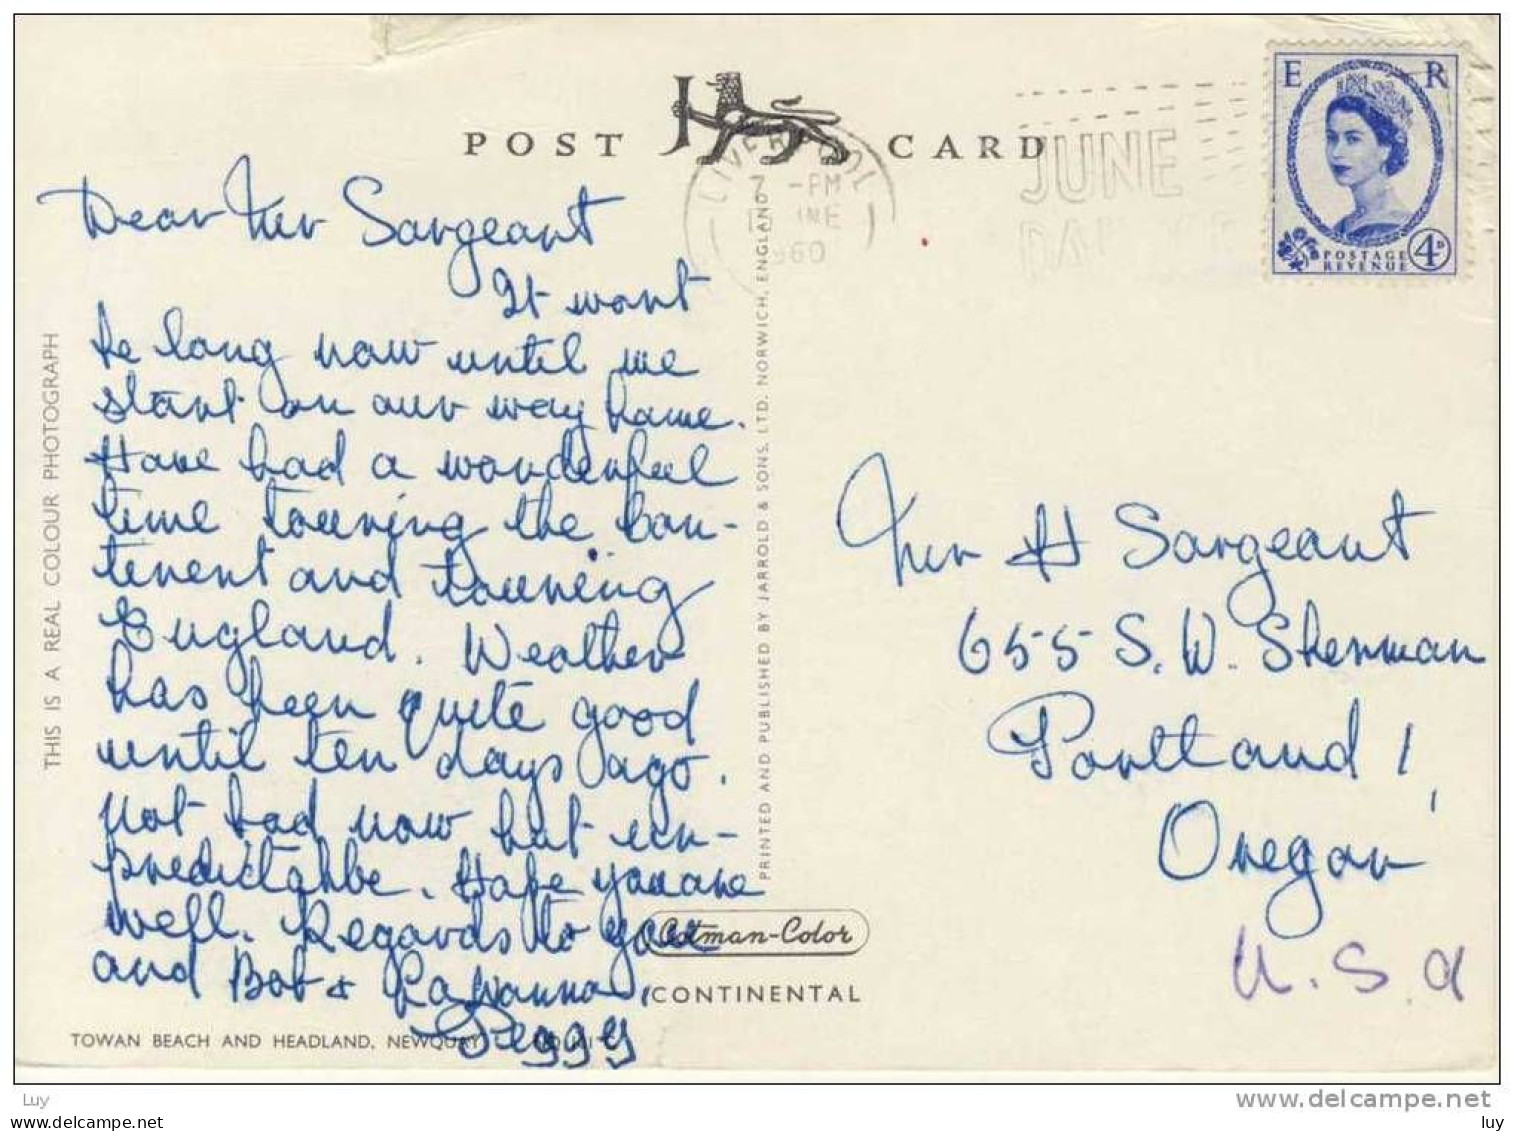 POST CARD
LIVERPOOL
7 -PM
NE
960
JUNE
E R
POSTAGE
REVENUE
4D
Dear Mr Sargeant
It wont
be long now until we
start on our way home.
Have had a wonderful
time touring the Con-
tinent and touring
England. Weather
has been quite good
until ten days ago.
not bad now but un-
predictable. Hope you are
well. Regards to you
and Bob &
Peggy
Mr H Sargeant
655 S. W. Sherman
Portland 1,
Oregon
U. S. A
THIS IS A REAL COLOUR PHOTOGRAPH
PRINTED AND PUBLISHED BY JARROLD & SONS, LTD. NORWICH, ENGLAND
Cotman-Color
CONTINENTAL
TOWAN BEACH AND HEADLAND, NEWQUAY
Luy
www.delcampe.net
www.delcampe.net
luy